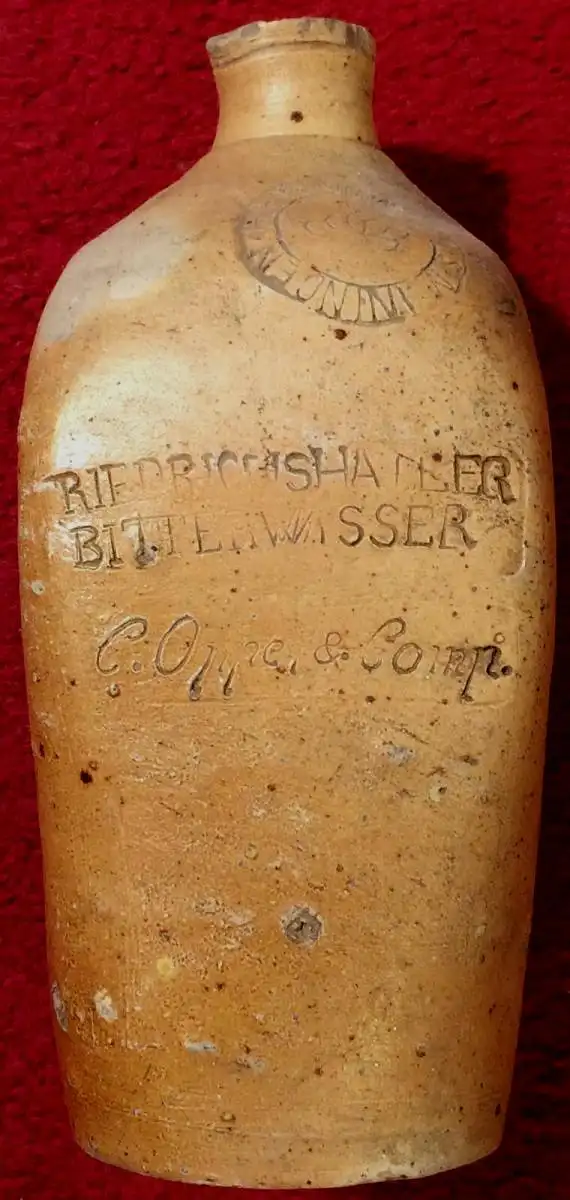 RIEDRICHSHALLER
BITTERWASSER
C. Oppel & Comp.